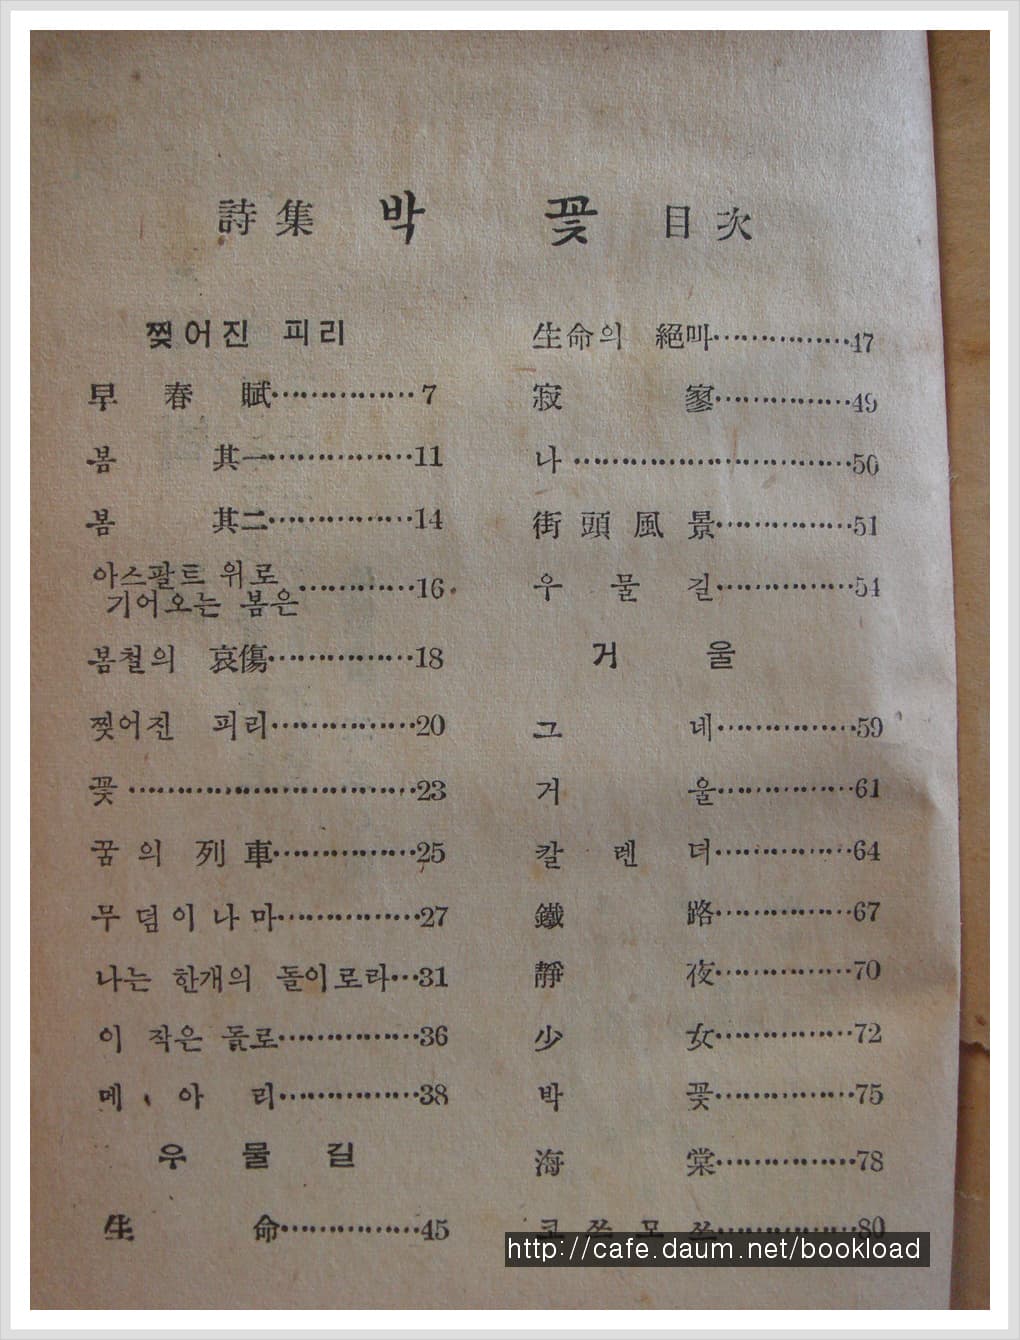 詩集 박 꽃 目次
찢어진 피리
早春賦……………7
봄 其一……………11
봄 其二……………14
아스팔트 위로
기어오는 봄은……………16
봄철의 哀傷……………18
찢어진 피리……………20
꽃……………………………23
꿈의 列車……………25
무덤이나마……………27
나는 한개의 돌이로라…31
이 작은 돐로……………36
메아리……………38
우물길
生命……………45
生命의 絕叫……………47
寂寥……………49
나……………………………50
街頭風景……………51
우물길……………54
거울
그네……………59
거울……………61
칼렌더……………64
鐵路……………67
靜夜……………70
少女……………72
박꽃……………75
海棠……………78
코쓰모쓰……………80
http://cafe.daum.net/bookload